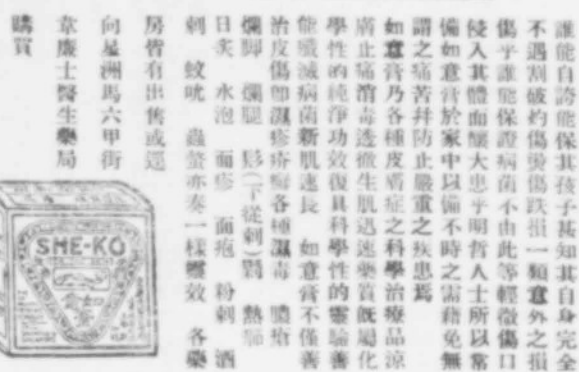 誰能自誇能保其孩子甚知其自身完全
不遇割破灼傷燙傷跌損一類意外之損
傷乎誰能保證病菌不由此等輕微傷口
侵入其體而釀大患乎明哲人士所以常
備如意膏於家中以備不時之需藉免無
謂之痛苦并防止嚴重之疾患焉
如意膏乃各種皮膚症之科學治療品涼
膚止痛消毒透徹生肌迅速藥質旣屬化
學性的純淨功效復具科學性的靈驗善
能殲滅病菌新肌速長　如意膏不僅善
治皮傷卽濕疹疥癬各種濕毒　膿瘡
爛脚　爛腿　髟(下從剃)鬁　熱痱
日炙　水泡　面疹　面疱　粉刺　酒
刺　蚊吮　蟲螫亦奏一樣靈效　各藥
房皆有出售或逕
向星洲馬六甲街
韋廉士醫生藥局
購買
SHE-KO